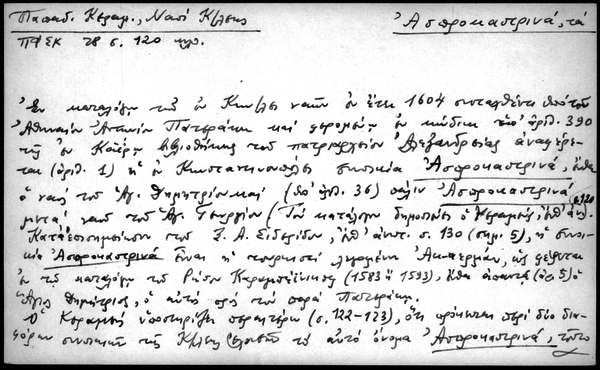 Παπαδ. Κεραμ., Ναοί Κ/λεως Ἀσπροκαστρινά, τά
ΠΦΣΚ 28 σ. 120 κλπ.
Ἐν καταλόγῳ τῶν ἐν Κων/λει ναῶν ἐν ἔτει 1604 συνταχθέντι ὑπὸ τοῦ
Ἀθηναίου Ἀντωνίου Πατεράκη καὶ φερομένῳ ἐν κώδικι ὑπ' ἀριθ. 390
τῆς ἐν Καΐρῳ βιβλιοθήκης τοῦ πατριαρχείου Ἀλεξανδρείας ἀναφέρε-
ται (ἀριθ. 1) ἡ ἐν Κωνσταντινουπόλει συνοικία Ἀσπροκαστρινά, ἔνθα
ὁ ναὸς τοῦ Ἁγ. Δημητρίου καὶ (ὑπ' ἀριθ. 36) πάλιν Ἀσπροκαστρινά
μετὰ ναοῦ τοῦ Ἁγ. Γεωργίου (Τὸν κατάλογον δημοσιεύει ὁ Κεραμεύς, ἔνθ' ἀν. σ. 120
Κατὰ ἐπισημείωσιν τοῦ Ξ. Α. Σιδερίδου, ἔνθ' ἀνωτ. σ. 130 (σημ. 5), ἡ συνοι-
κία Ἀσπροκαστρινά εἶναι ἡ τουρκιστὶ λεγομένη Ἀκ-κερμάν, ὡς φέρεται
ἐν τῷ καταλόγῳ τοῦ Ρώσου Κορομπεϊνίκωφ (1583 ἢ 1593), ἔνθα ἀπαντᾷ (ἀρ. 5) ὁ
Ἅγιος Δημήτριος, ὁ αὐτὸς πρὸς τὸν παρὰ Πατεράκῃ.
Ὁ Κεραμεὺς ὑποστηρίζει περαιτέρω (σ. 122-123), ὅτι πρόκειται περὶ δύο δια-
φόρων συνοικιῶν τῆς Κ/λεως τὸ αὐτὸ ὄνομα Ἀσπροκαστρινά, τοῦτο